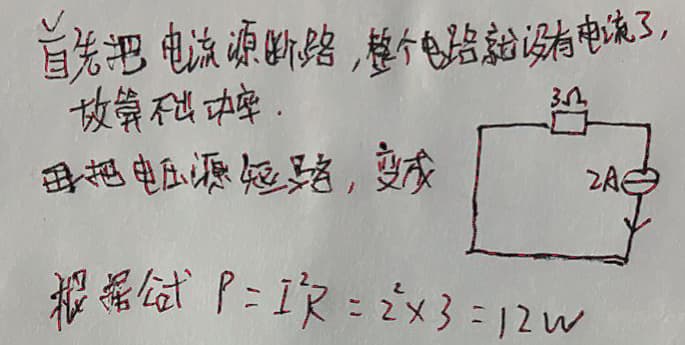 首先把电流源断路,整个电路就没有电流了,
故算不出功率.
再把电压源短路,变成
3Ω
2A
根据公式 P=I²R=2²×3=12W